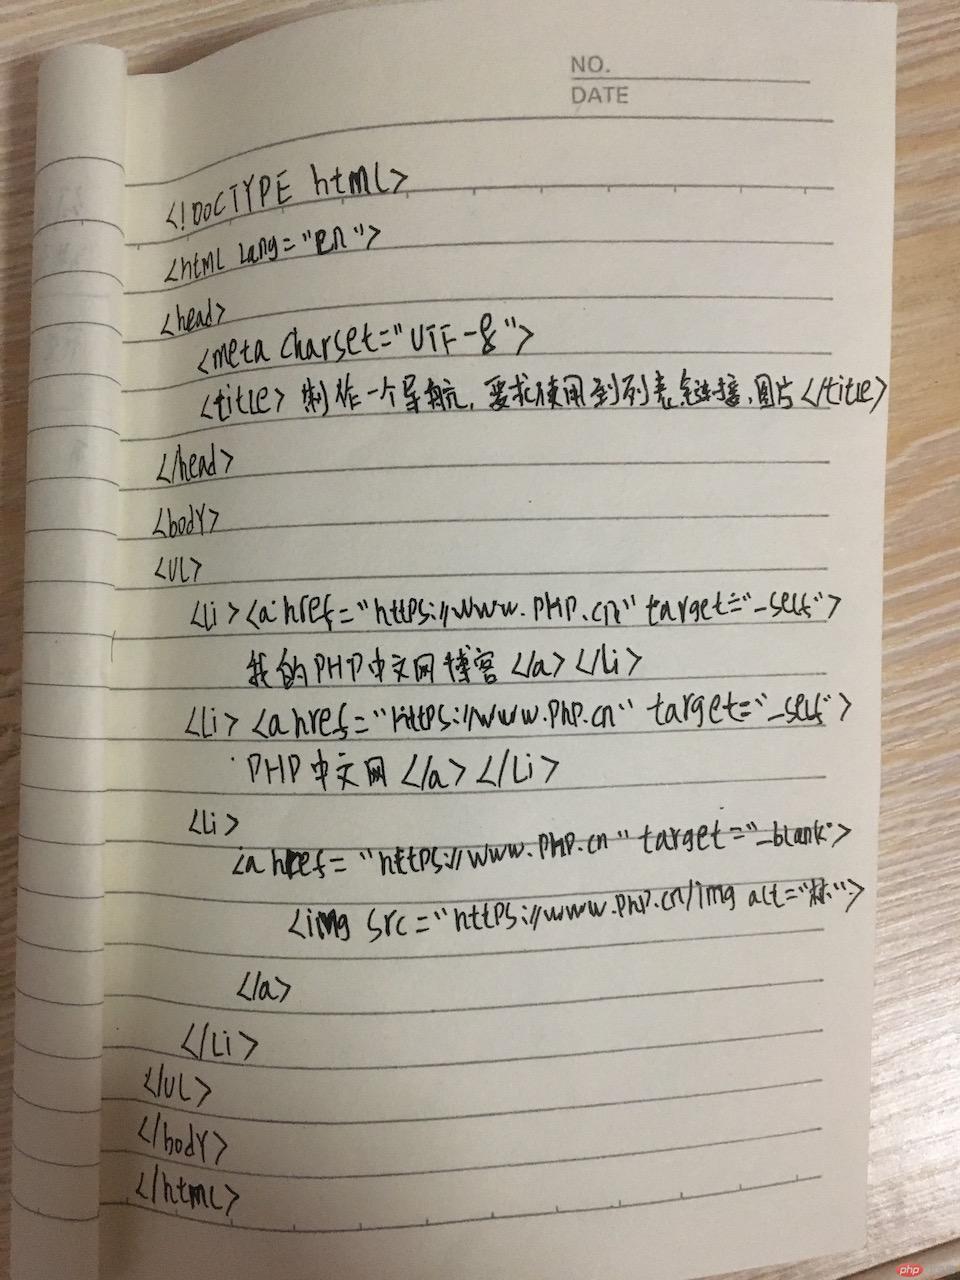 NO.
DATE
<!DOCTYPE html>
<html lang="en">
<head>
<meta charset="UTF-8">
<title>制作一个导航,要求使用到列表,链接,图片</title>
</head>
<body>
<ul>
<li><a href="https://www.PHP.cn" target="_self">
我的PHP中文网博客</a></li>
<li><a href="https://www.php.cn" target="_self">
PHP中文网</a></li>
<li>
<a href="https://www.php.cn" target="_blank">
<img src="https://www.php.cn/img alt="">
</a>
</li>
</ul>
</body>
</html>
php